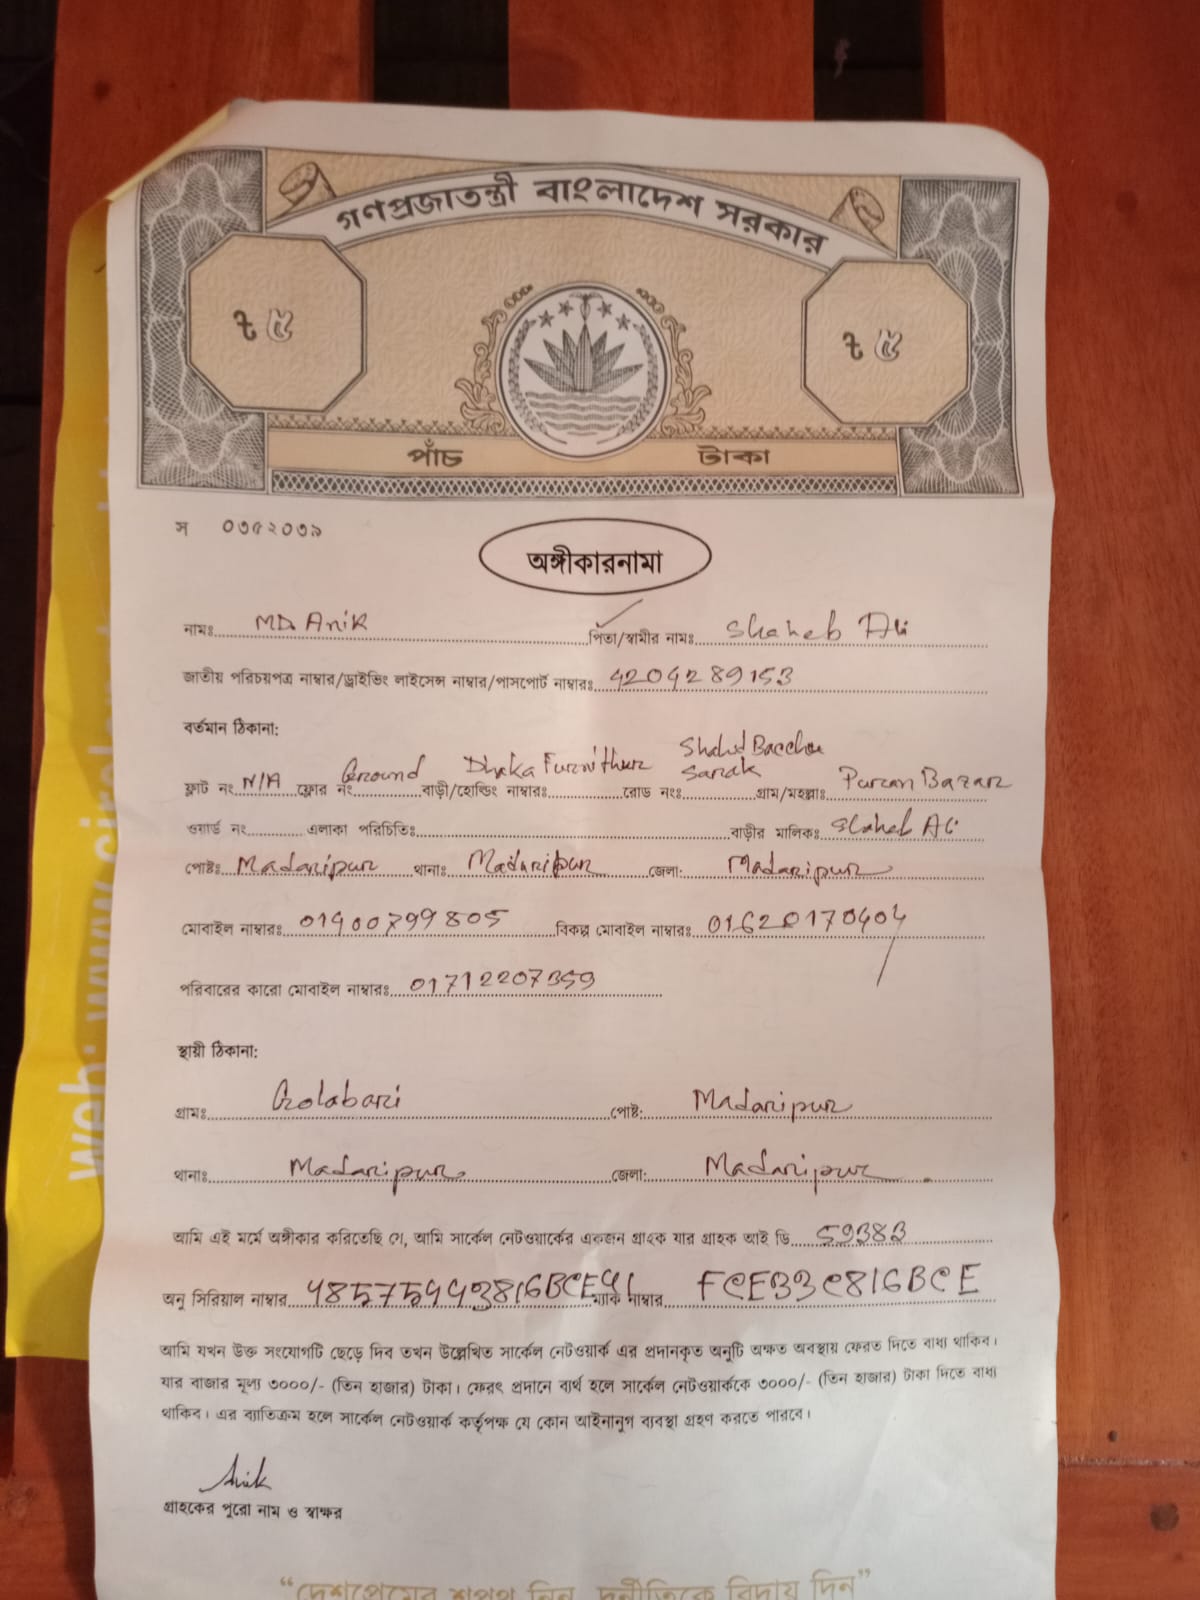 গণপ্রজাতন্ত্রী বাংলাদেশ সরকার
৳ ৫ ৳ ৫
পাঁচ টাকা
স ০৩৫২০৩৯
অঙ্গীকারনামা
নামঃ MD Anik পিতা/স্বামীর নামঃ Shaheb Ali
জাতীয় পরিচয়পত্র নাম্বার/ড্রাইভিং লাইসেন্স নাম্বার/পাসপোর্ট নাম্বারঃ 4204289153
বর্তমান ঠিকানা:
ফ্লাট নং N/A ফ্লোর নং Ground বাড়ী/হোল্ডিং নাম্বারঃ Dhaka Furnithur রোড নং Shahid Bacchu Sarak গ্রাম/মহল্লাঃ Puran Bazar
ওয়ার্ড নং এলাকা পরিচিতিঃ বাড়ীর মালিকঃ Shaheb Ali
পোষ্টঃ Madaripur থানাঃ Madaripur জেলা: Madaripur
মোবাইল নাম্বারঃ 01900799805 বিকল্প মোবাইল নাম্বারঃ 01620170404
পরিবারের কারো মোবাইল নাম্বারঃ 01712207359
স্থায়ী ঠিকানা:
গ্রামঃ Golabari পোষ্ট: Madaripur
থানাঃ Madaripur জেলা: Madaripur
আমি এই মর্মে অঙ্গীকার করিতেছি যে, আমি সার্কেল নেটওয়ার্কের একজন গ্রাহক যার গ্রাহক আই ডি 59383
অনু সিরিয়াল নাম্বার 485754493816BCE41 ম্যাক নাম্বার FCE33C816BCE
আমি যখন উক্ত সংযোগটি ছেড়ে দিব তখন উল্লেখিত সার্কেল নেটওয়ার্ক এর প্রদানকৃত অনুটি অক্ষত অবস্থায় ফেরত দিতে বাধ্য থাকিব।
যার বাজার মূল্য ৩০০০/- (তিন হাজার) টাকা। ফেরৎ প্রদানে ব্যর্থ হলে সার্কেল নেটওয়ার্ককে ৩০০০/- (তিন হাজার) টাকা দিতে বাধ্য
থাকিব। এর ব্যাতিক্রম হলে সার্কেল নেটওয়ার্ক কর্তৃপক্ষ যে কোন আইনানুগ ব্যবস্থা গ্রহণ করতে পারবে।
Anik
গ্রাহকের পুরো নাম ও স্বাক্ষর
“দেশপ্রেমের শপথ নিন, দুর্নীতিকে বিদায় দিন”